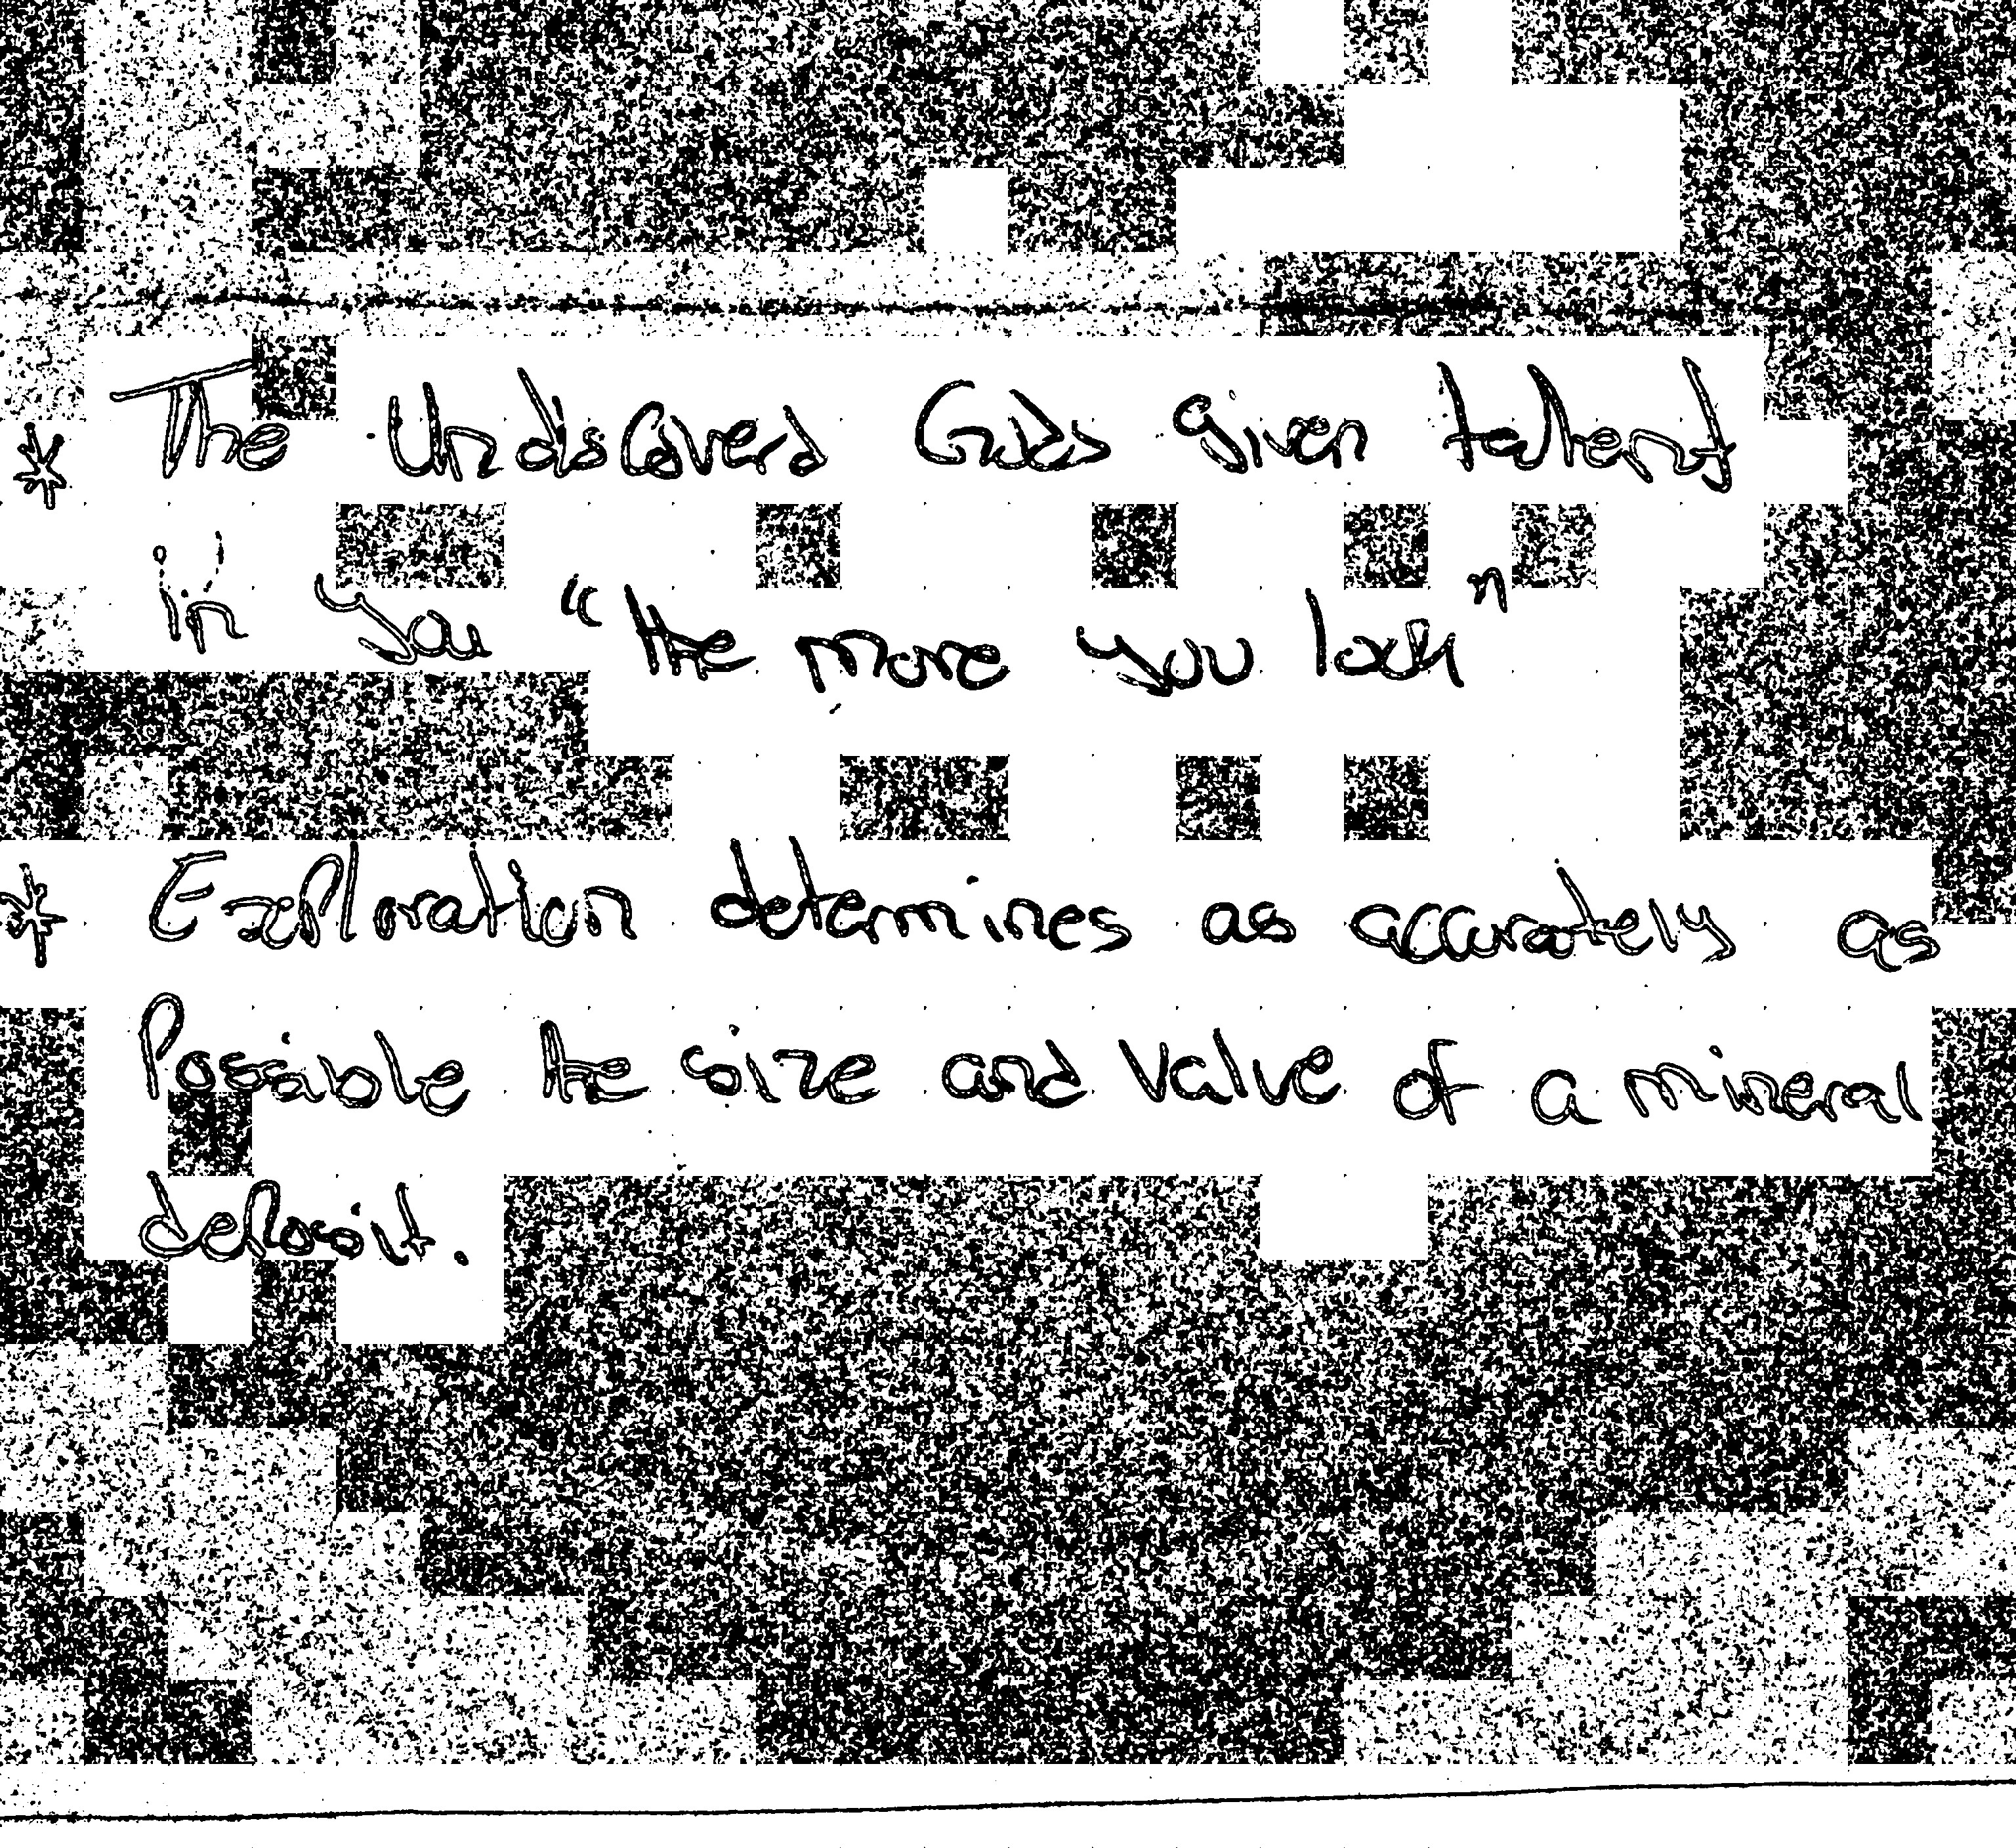 * The Undiscoverd Gods given talent
in you "the more you look"
* Exploration determines as accurately as
Possible the size and value of a mineral
deposit.